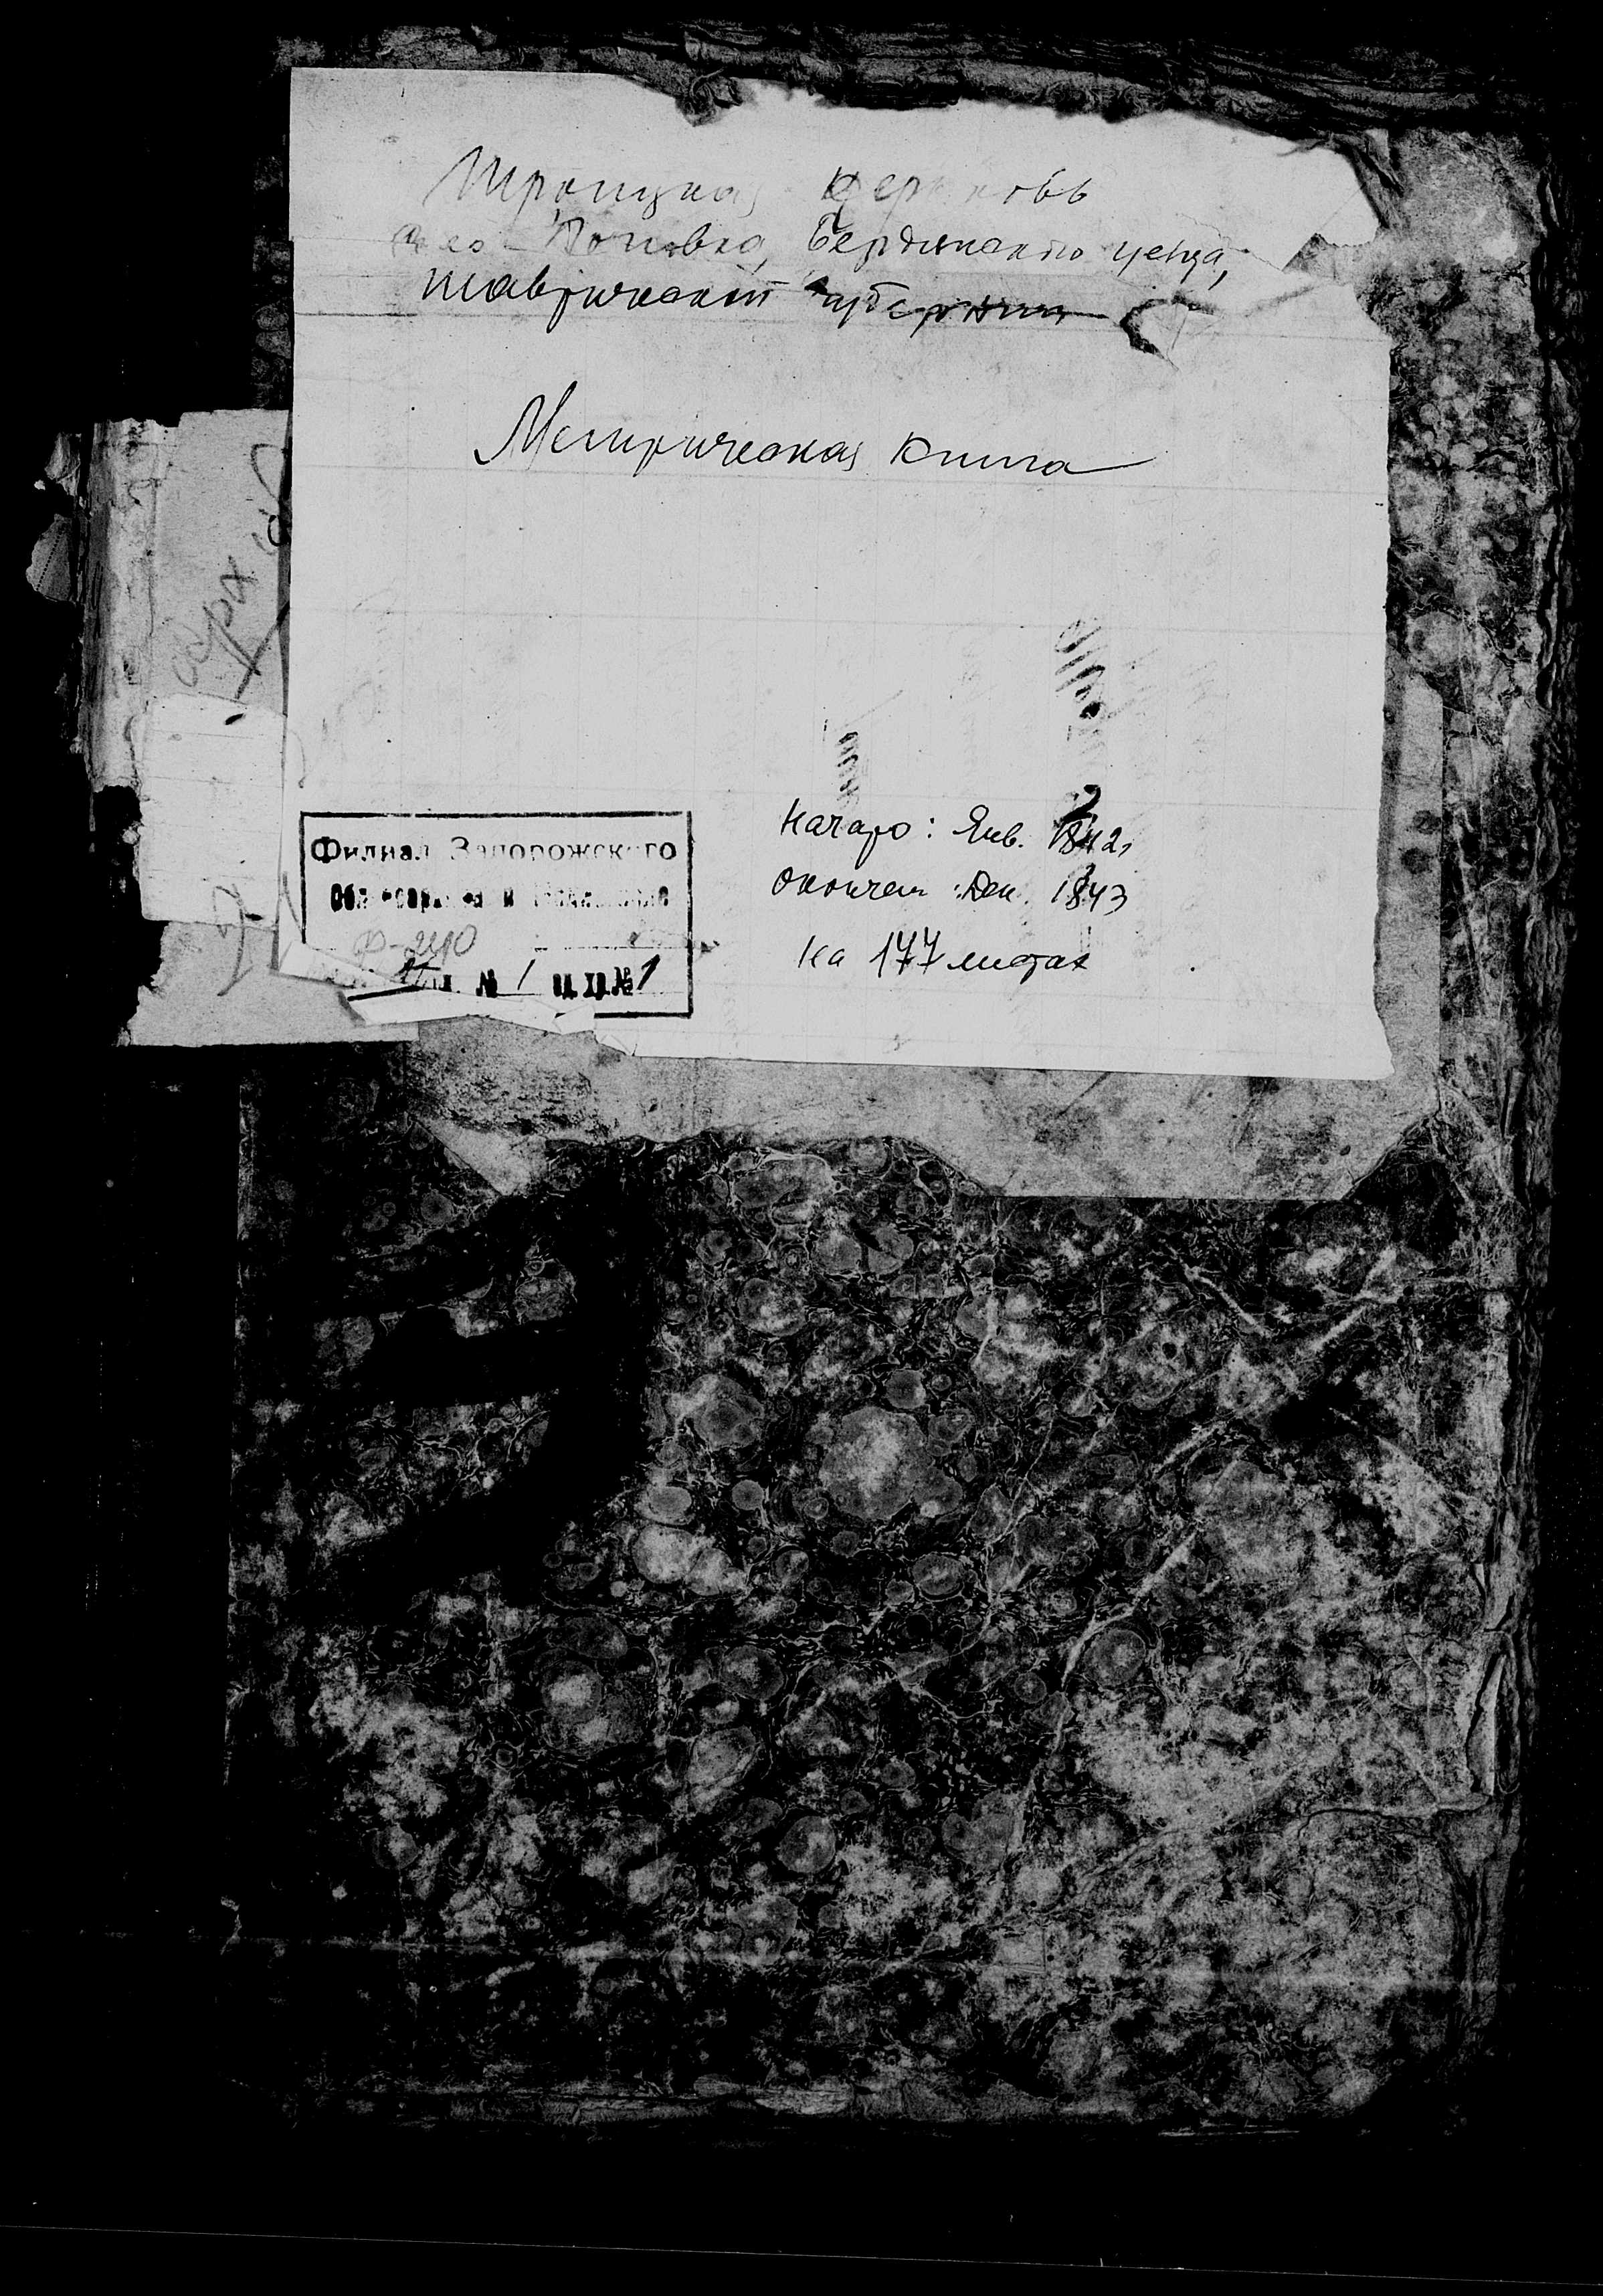 Троицкая церковь
село Поповка, Бердянского уезда,
Таврической губернии
Метрическая книга
арх
Начато: Янв. 1842г
Окончен: Дек. 1843
На 177 листах
Филиал Запорожского
Облгосархива
Ф-240
№ 1 ед. хр. № 1